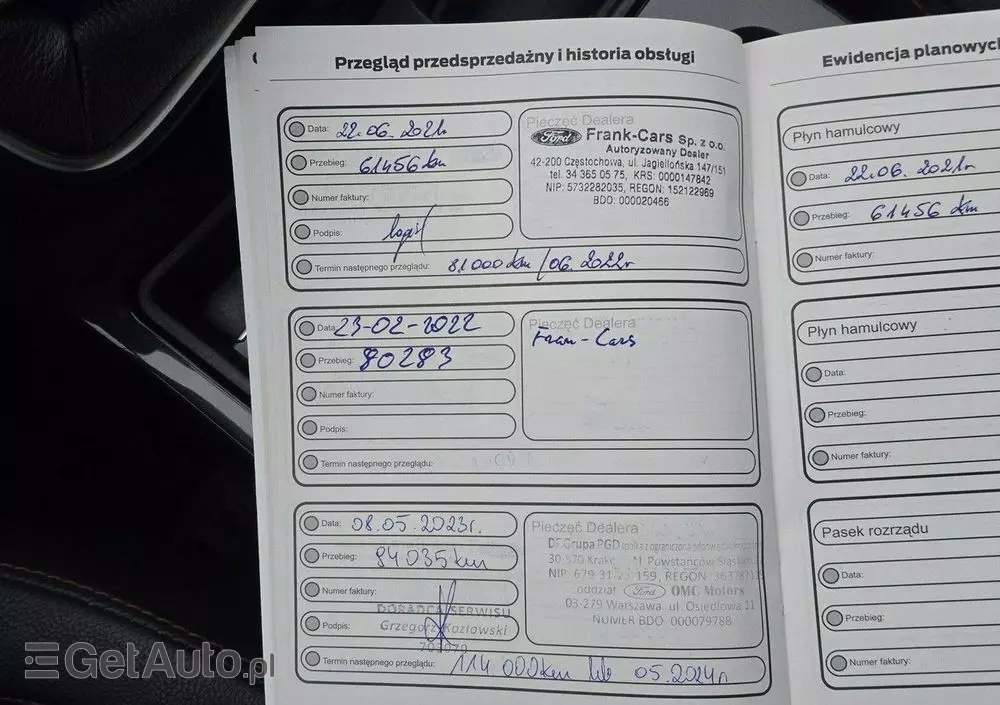 Przegląd przedsprzedażny i historia obsługi
Data: 22.06.2021r
Przebieg: 61456 km
Numer faktury:
Podpis:
Termin następnego przeglądu: 81000 km / 06.2022r
Pieczęć Dealera
Ford Frank-Cars Sp. z o.o.
Autoryzowany Dealer
42-200 Częstochowa, ul. Jagiellońska 147/151
tel. 34 365 05 75, KRS: 0000147842
NIP: 5732282035, REGON: 152122969
BDO: 000020466
Data: 23-02-2022
Przebieg: 80283
Numer faktury:
Podpis:
Termin następnego przeglądu:
Pieczęć Dealera
Fran-Cars
Data: 08.05.2023r.
Przebieg: 84035 km
Numer faktury:
DORADCA SERWISU
Podpis: Grzegorz Kozłowski
Termin następnego przeglądu: 114 000km lub 05.2024r
Pieczęć Dealera
DF Grupa PGD
30-570 Krak Powstańców Śląskich
NIP 679-31 159, REGON:
oddział Ford OMC Motors
03-279 Warszawa ul. Osiedlowa 11
NUMER BDO 000079788
Ewidencja planowych
Płyn hamulcowy
Data: 22.06.2021r
Przebieg: 61456 km
Numer faktury:
Płyn hamulcowy
Data:
Przebieg:
Numer faktury:
Pasek rozrządu
Data:
Przebieg:
Numer faktury:
GetAuto.pl